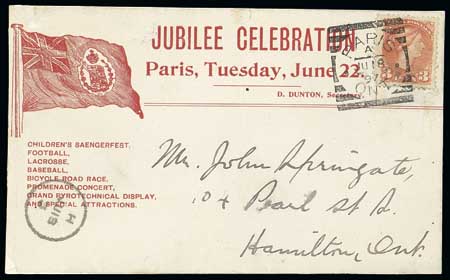 JUBILEE CELEBRATION
Paris, Tuesday, June 22.
D. DUNTON, Secretary.
PARIS
A
JU 18
97
ONT
3
CHILDREN'S SAENGERFEST,
FOOTBALL,
LACROSSE,
BASEBALL,
BICYCLE ROAD RACE,
PROMENADE CONCERT,
GRAND PYROTECHNICAL DISPLAY,
AND SPECIAL ATTRACTIONS.
Mr. John Springate,
104 Pearl St S.
Hamilton, Ont.
H